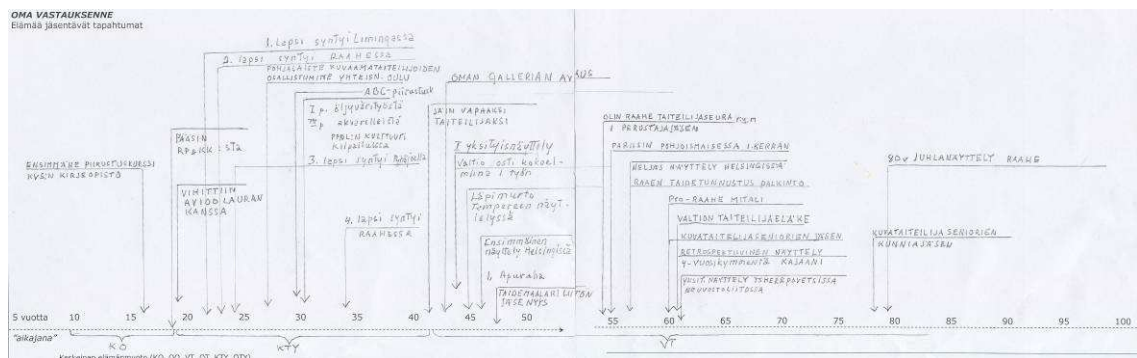 OMA VASTAUKSENNE
Elämää jäsentävät tapahtumat
1. Lapsi syntyi Limingassa
2. lapsi syntyi RAAHESSA
POHJALAISTE KUVAAMATAITEILIJOIDEN
OSALLISTUMINE YHTEISN. OULU
ABC-piirustusk
OMAN GALLERIAN AVAUS
I p. öljyväritöistä
II p. akvarelleistä
kilpailussa
JÄIN VAPAAKSI
TAITEILIJAKSI
PÄÄSIN
3. lapsi syntyi
ENSIMMÄINE PIIRUSTUSKURSSI
KVS:N KIRJEOPISTO
VIHITTIIN
AVIOON LAURAN
KANSSA
4. lapsi syntyi
RAAHESSA
I yksityisnäyttely
Valtio osti kokoel-
miinsa 1 työn
Läpimurto
Tampereen näyt-
telyssä
Ensimmäinen
näyttely Helsingissä
1. Apuraha
TAIDEMAALARILIITON
JÄSENYYS
OLIN RAAHE TAITEILIJASEURA r.y.n
1 PERUSTAJAJÄSEN
PARIISIN POHJOISMAISESSA 1. KERRAN
NELJÄS NÄYTTELY HELSINGISSÄ
RAAHEN TAIDETUNNUSTUS PALKINTO
Pro-RAAHE MITALI
VALTION TAITEILIJAELÄKE
KUVATAITEILIJASENIORIEN JÄSEN
RETROSPEKTIIVINEN NÄYTTELY
4-VUOSIKYMMENTÄ KAJAANI
NEUVOSTOLIITOSSA
80v JUHLANÄYTTELY RAAHE
KUVATAITEILIJA SENIORIEN
KUNNIAJÄSEN
5 vuotta 10 15 20 25 30 35 40 45 50 55 60 65 70 75 80 85 90 95 100
"aikajana"
KO KTY VT
Keskeinen elämänmuoto (KO, OO, VT, OT, KTY, OTY)